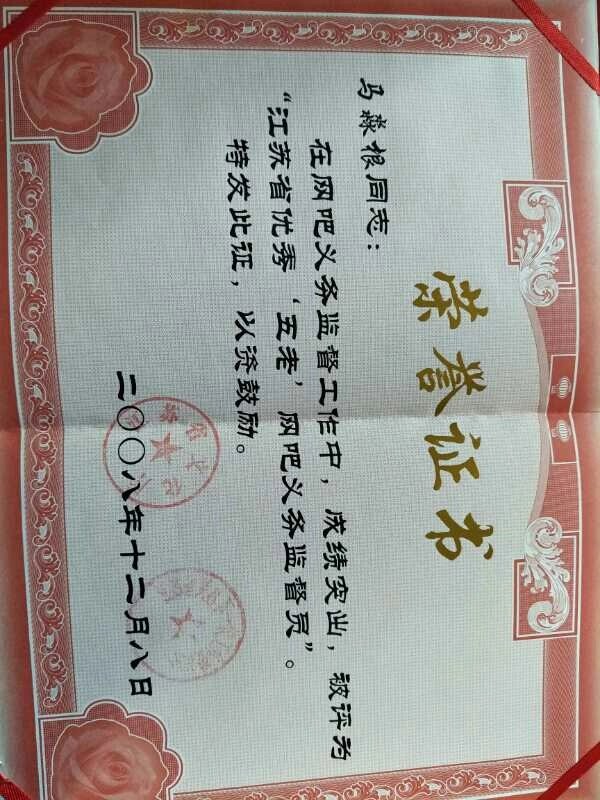 荣誉证书
马淼根同志：
在网吧义务监督工作中，成绩突出，被评为
“江苏省优秀‘五老’网吧义务监督员”。
特发此证，以资鼓励。
二〇〇八年十二月八日